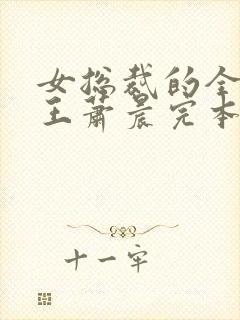 女总裁的全
王萧晨完本
十一牢